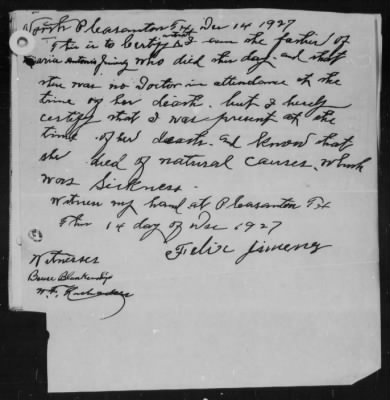 North Pleasanton Tx Dec 14 1927
This is to Certify that I am the father of
Maria Antonia Jimenz who died this day. and that
there was no Doctor in attendance at the
time of her death. but I hereby
certify that I was present at the
time of her death. and know that
she died of natural causes. which
was Sickness.
Witness my hand at Pleasanton Tx
This 14 day of Dec 1927
Felix Jimenz
Witnesses
Blankenship
W. F.